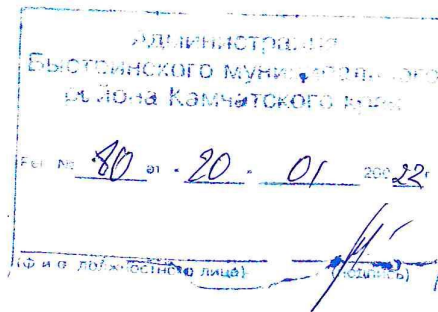 Администрация
Быстринского муниципального
района Камчатского края
Рег. № 80 от 20 01 200 22г
(ф и о должностного лица) (подпись)